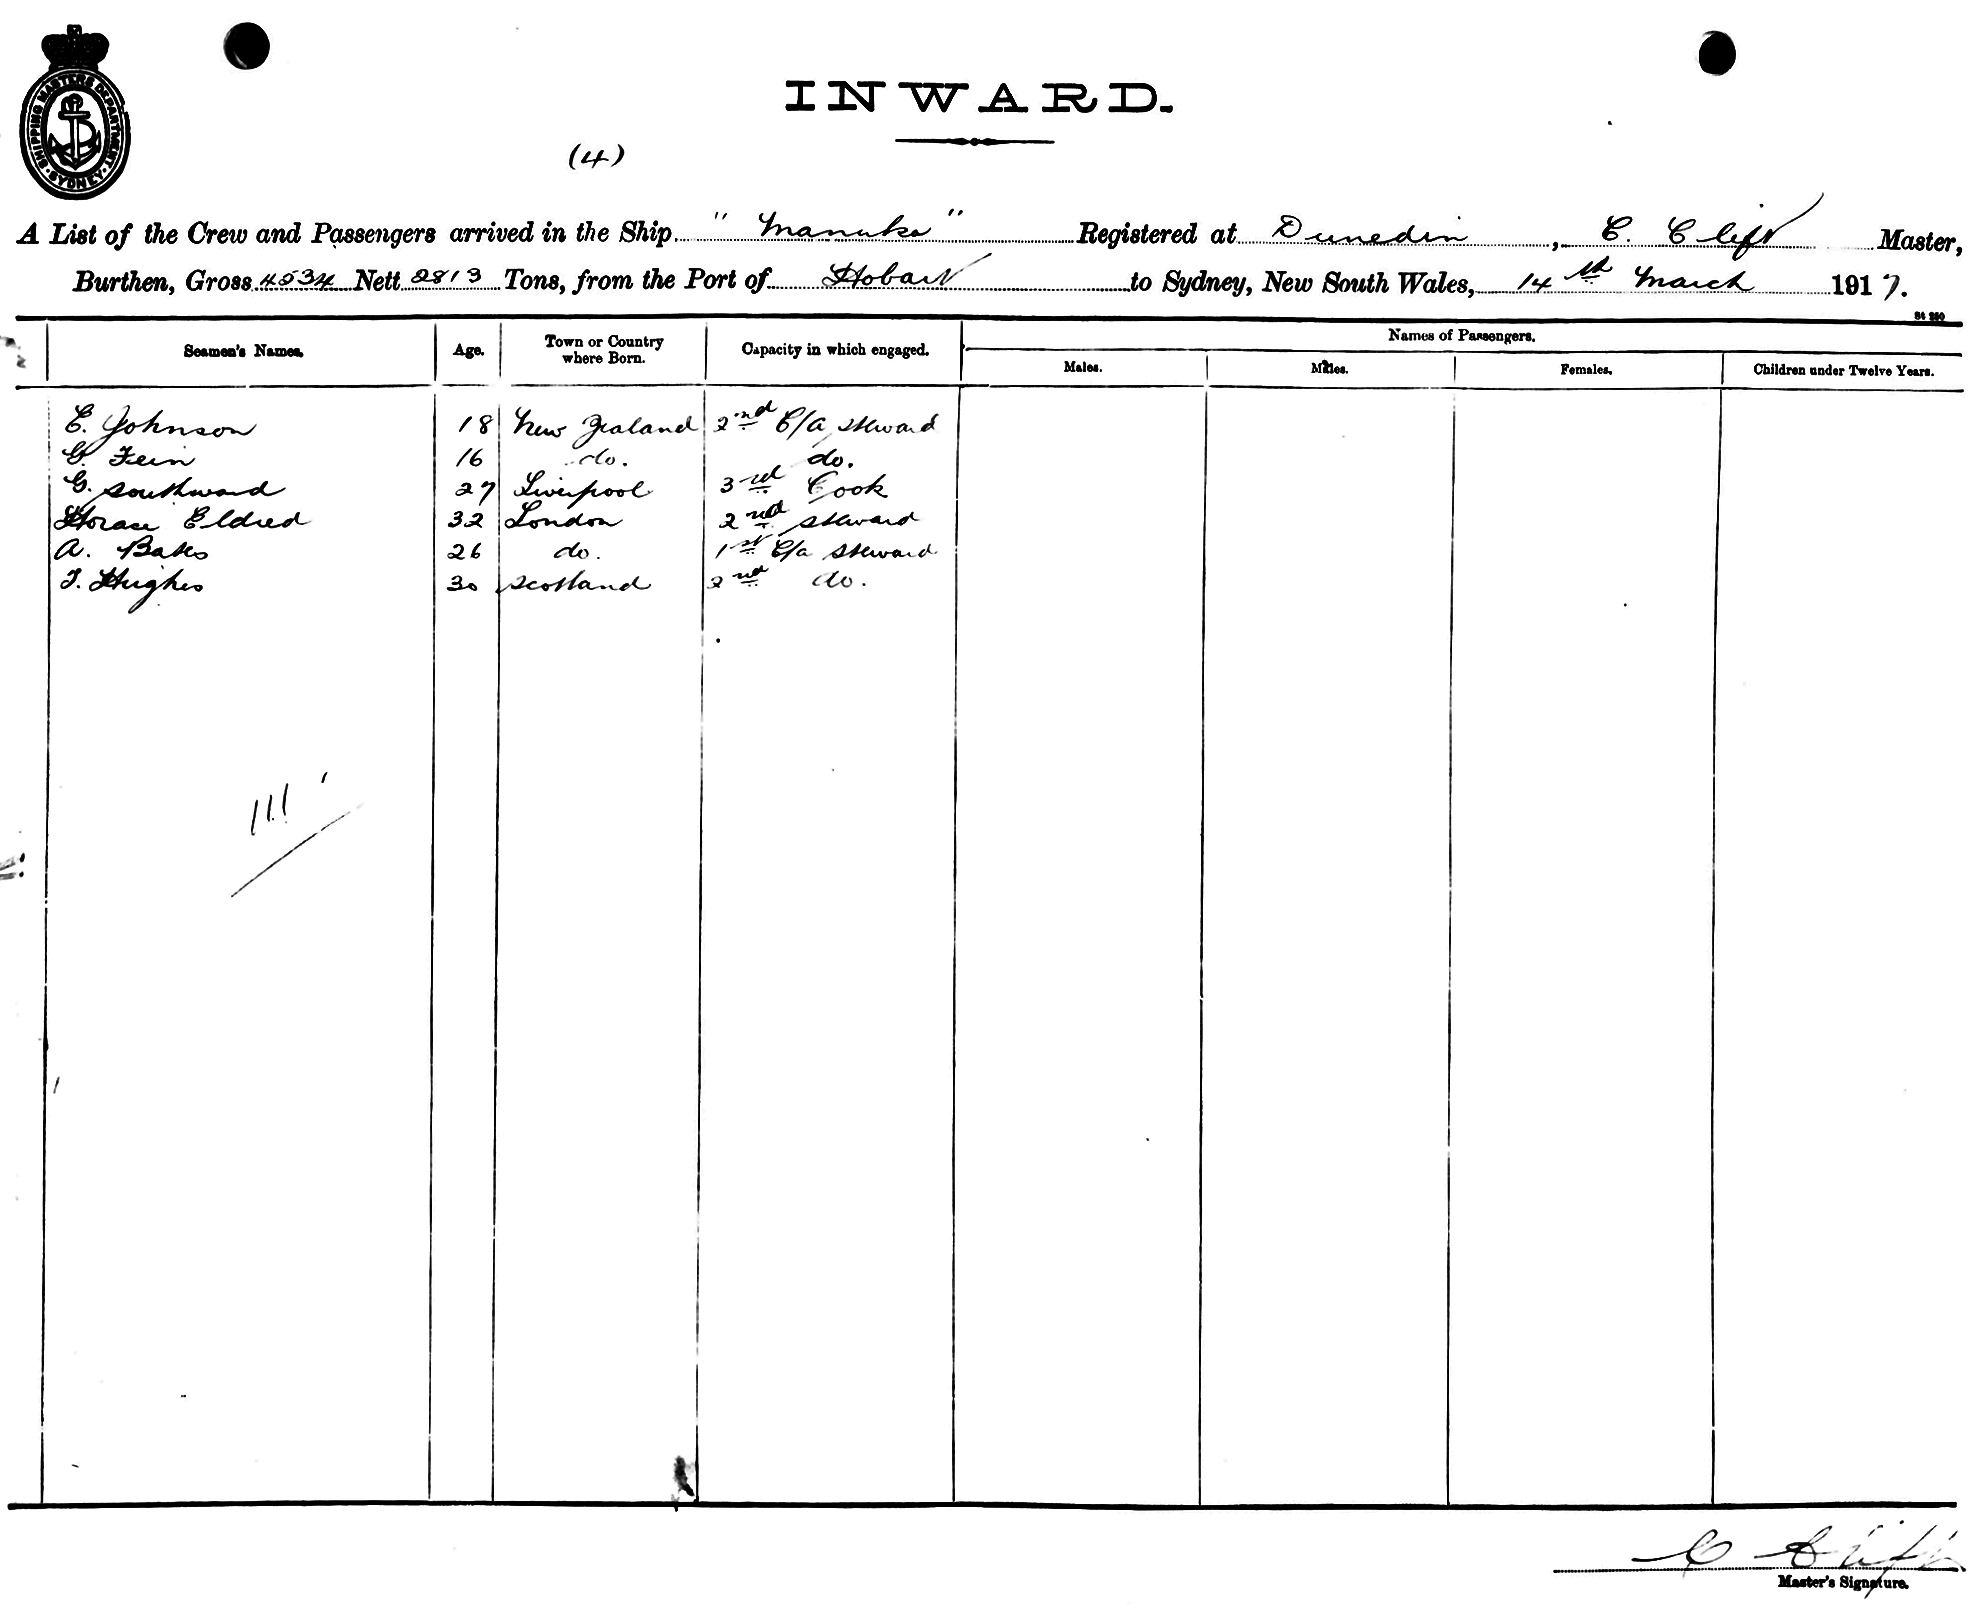 SHIPPING MASTERS DEPARTMENT · SYDNEY ·
INWARD.
(4)
A List of the Crew and Passengers arrived in the Ship "Manuka" Registered at Dunedin, C. Clift Master,
Burthen, Gross 4534 Nett 2813 Tons, from the Port of Hobart to Sydney, New South Wales, 14th March 1917.
Seamen's Names. Age. Town or Country where Born. Capacity in which engaged. Names of Passengers.
Males. Males. Females. Children under Twelve Years.
E. Johnson 18 New Zealand 2nd C/a Steward
G. Fein 16 do. do.
G. Southward 27 Liverpool 3rd Cook
Horace Eldred 32 London 2nd Steward
A. Bates 26 do. 1st C/a Steward
T. Hughes 30 Scotland 2nd do.
111
C Clift
Master's Signature.